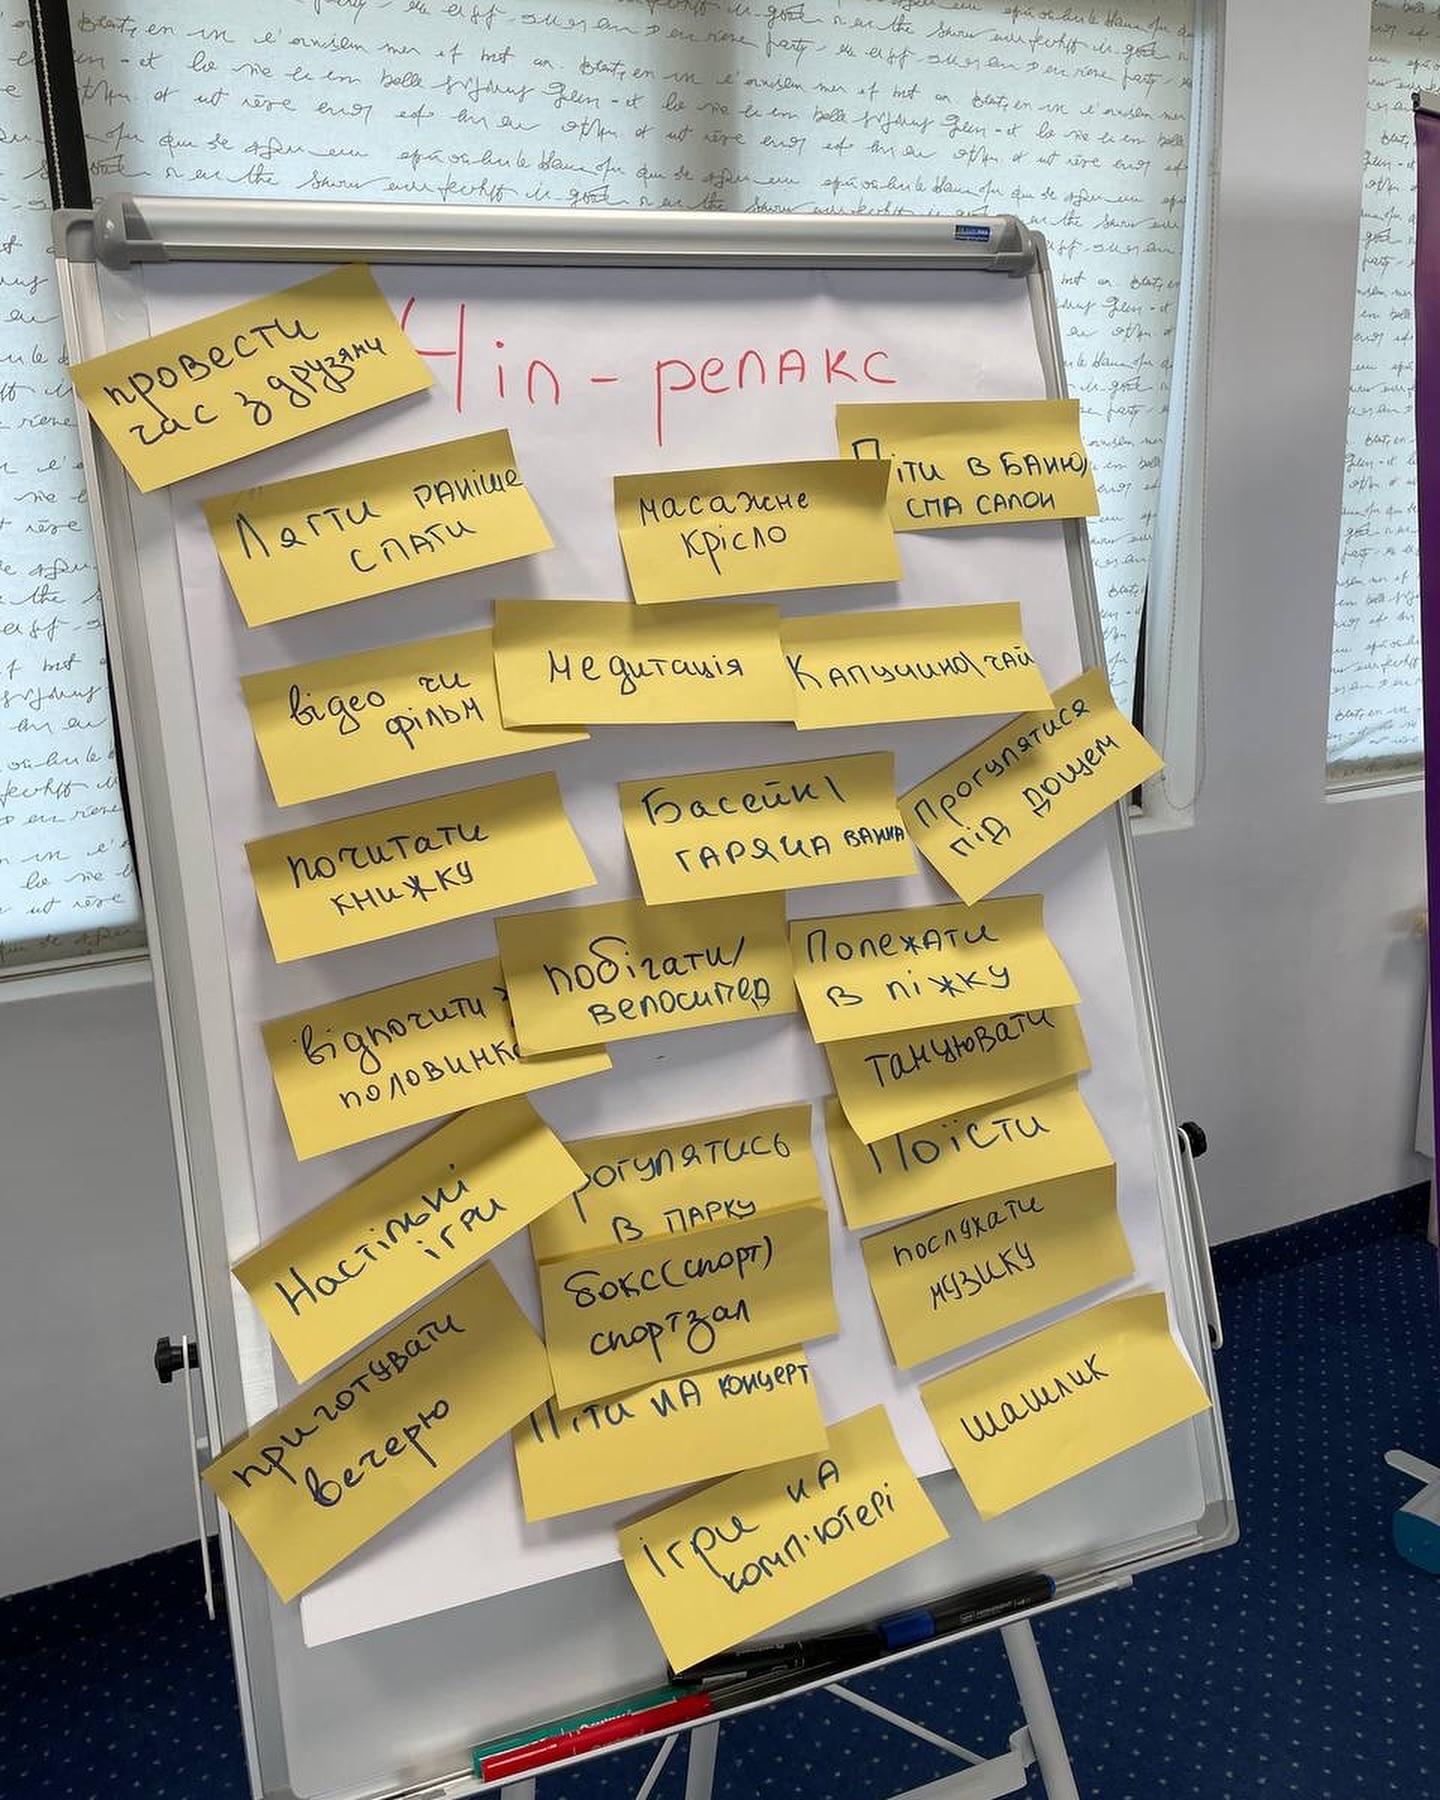 Чіл-релакс
провести
час з друзями
Лягти раніше
спати
масажне
крісло
Піти в баню,
спа салон
відео чи
фільм
медитація
Капучино\чай
Прогулятися
під дощем
почитати
книжку
Басейн\
гаряча ванна
відпочити з
половинк
побігати/
велосипед
Полежати
в ліжку
танцювати
Поїсти
Настільні
ігри
рогулятись
в парку
бокс(спорт)
спортзал
послухати
музику
приготувати
вечерю
Піти на концерт
шашлик
ігри на
комп'ютері